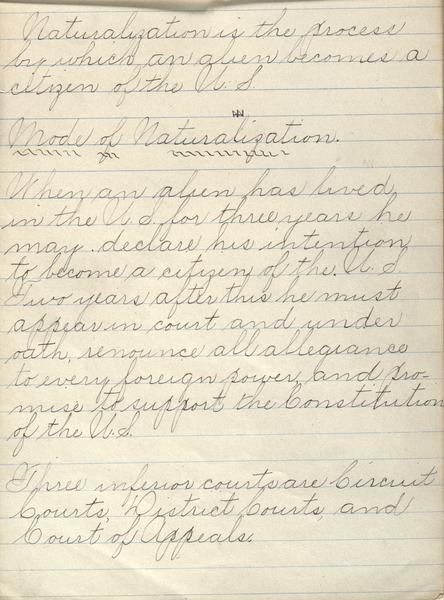 Naturalization is the process
by which an alien becomes a
citizen of the U. S.
Mode of Naturalization.
When an alien has lived
in the U. S. for three years he
may declare his intention
to become a citizen of the U. S.
Two years after this he must
appear in court and under
oath, renounce all allegiance
to every foreign power, and pro-
mise to support the Constitution
of the U.S.
Three inferior courts are Circuit
Courts, District Courts, and
Court of Appeals.